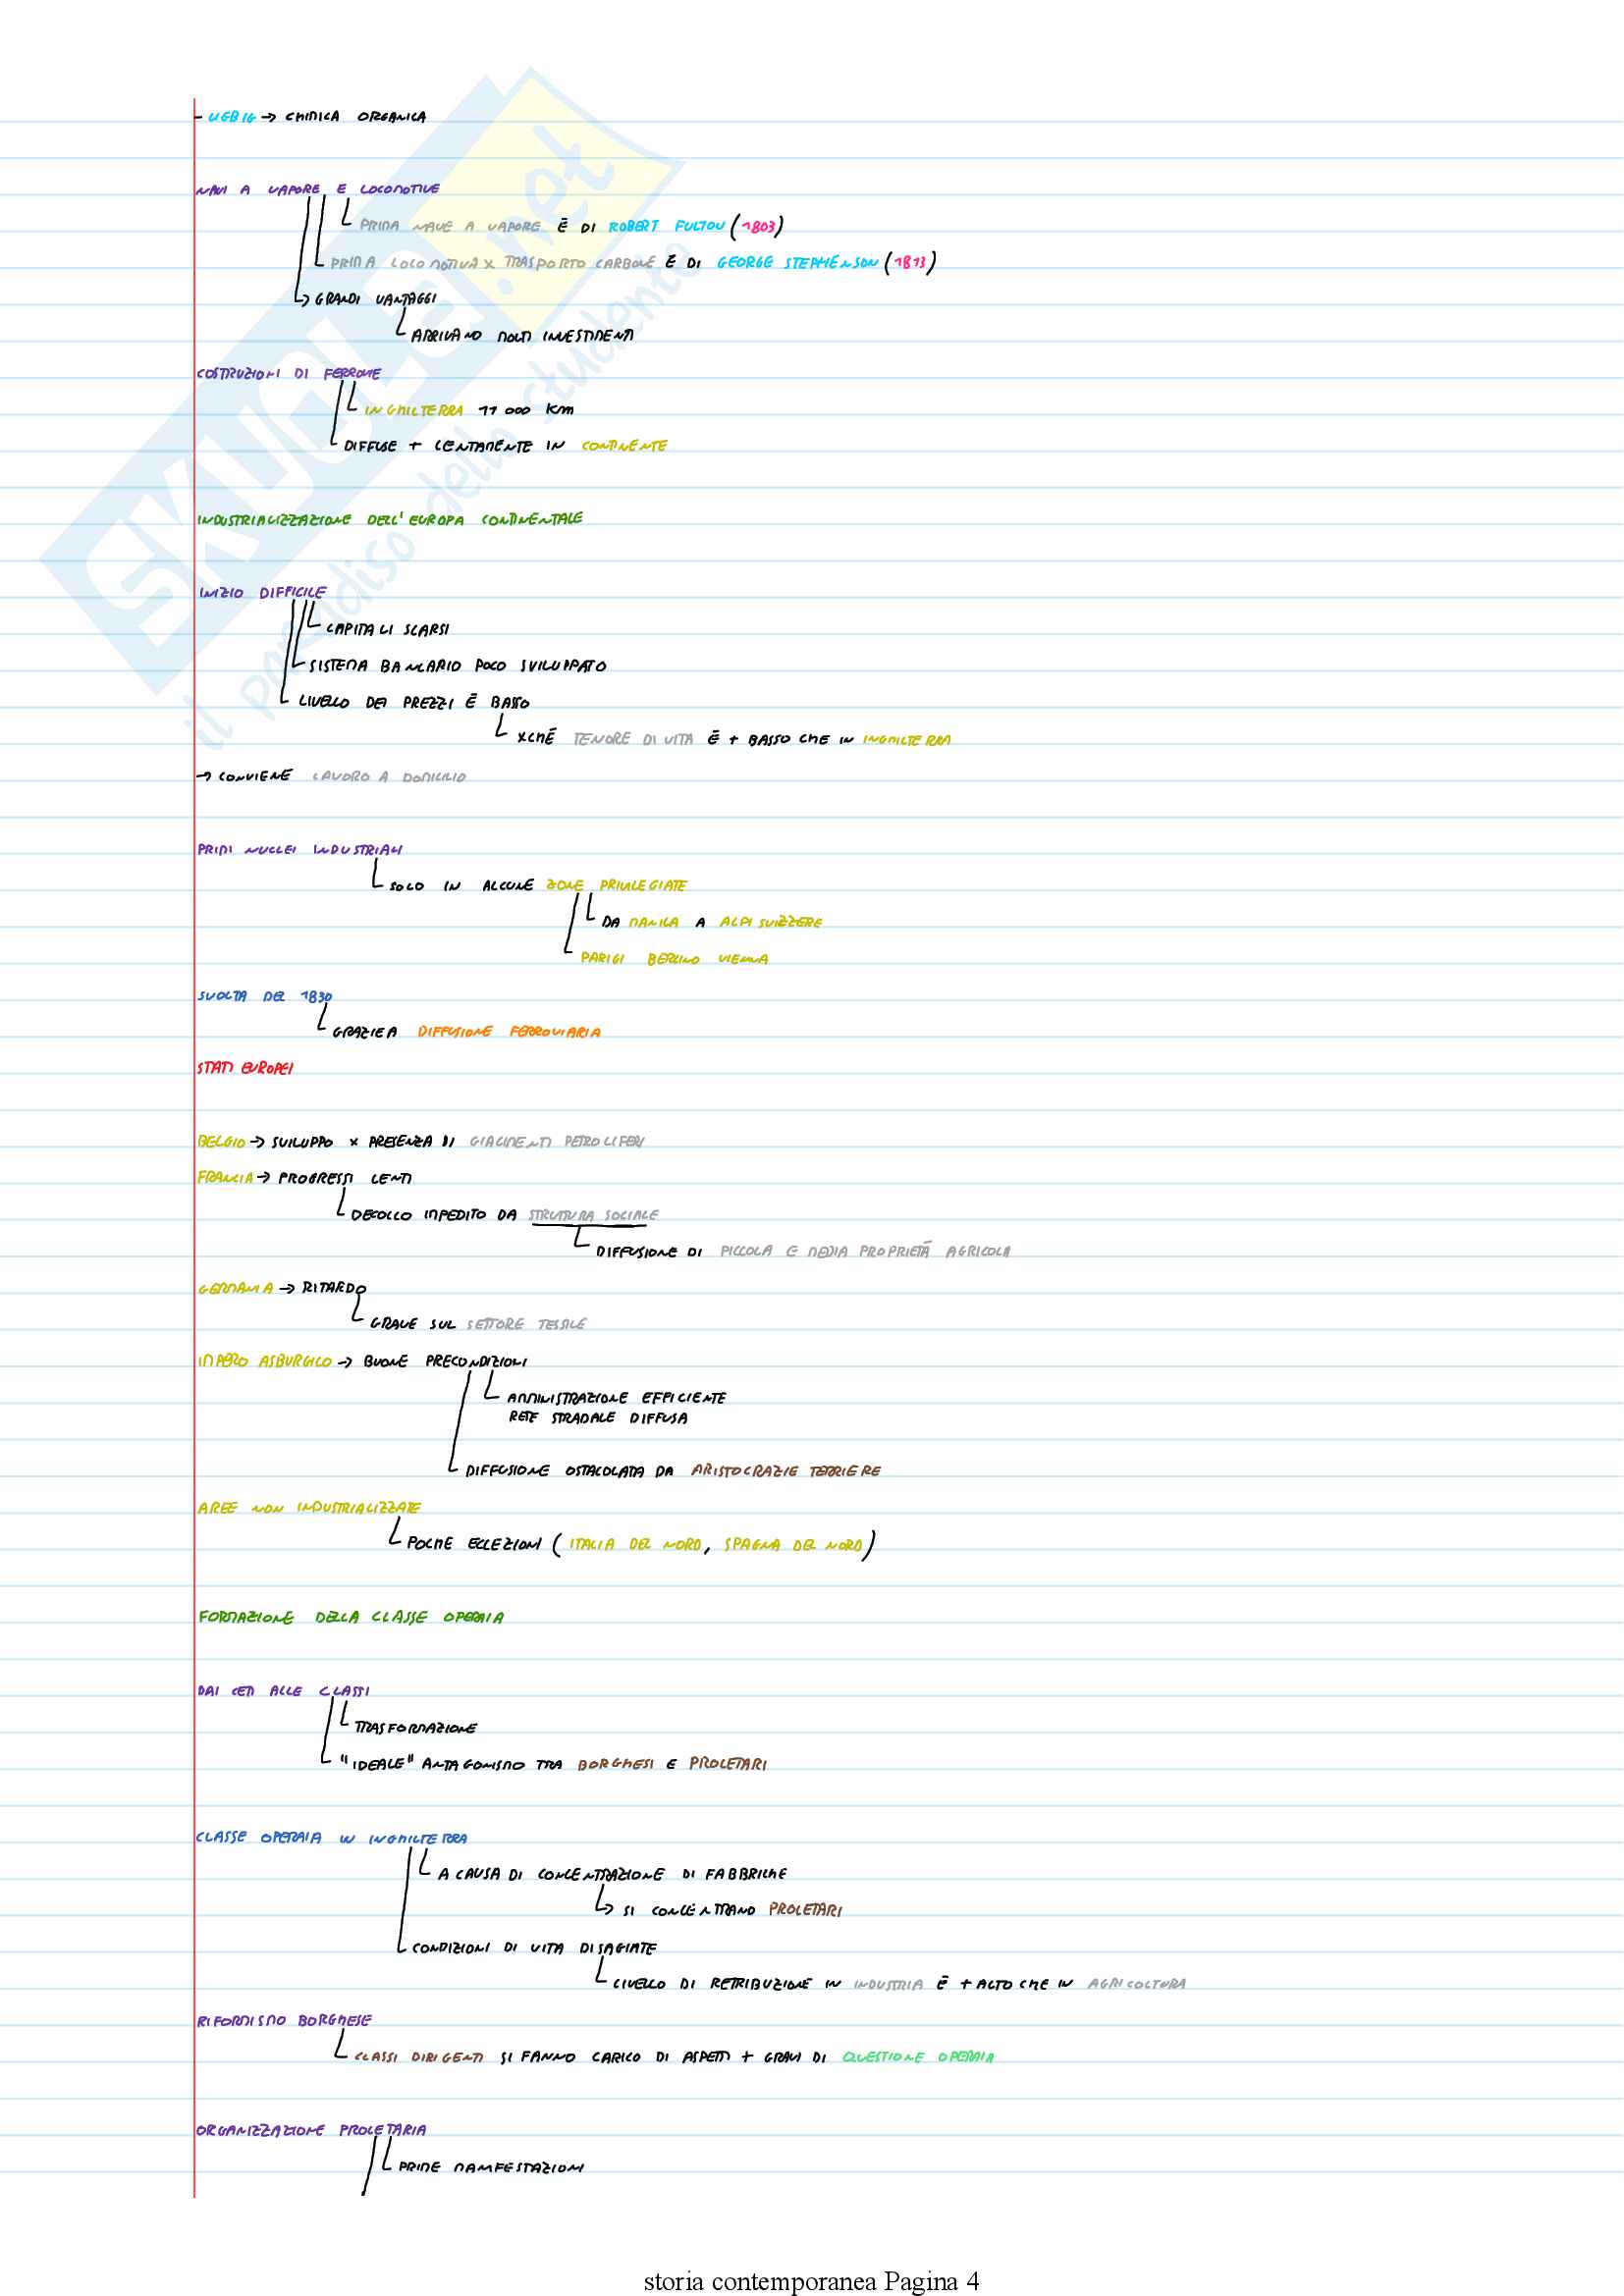 - LIEBIG → CHIMICA ORGANICA
NAVI A VAPORE E LOCOMOTIVE
PRIMA NAVE A VAPORE È DI ROBERT FULTON (1803)
PRIMA LOCOMOTIVA X TRASPORTO CARBONE È DI GEORGE STEPHENSON (1813)
GRANDI VANTAGGI
ARRIVANO MOLTI INVESTIMENTI
COSTRUZIONI DI FERROVIE
INGHILTERRA 11 000 Km
DIFFUSE + LENTAMENTE IN CONTINENTE
INDUSTRIALIZZAZIONE DELL'EUROPA CONTINENTALE
INIZIO DIFFICILE
CAPITALI SCARSI
SISTEMA BANCARIO POCO SVILUPPATO
LIVELLO DEI PREZZI È BASSO
XCHÉ TENORE DI VITA È + BASSO CHE IN INGHILTERRA
→ CONVIENE LAVORO A DOMICILIO
PRIMI NUCLEI INDUSTRIALI
SOLO IN ALCUNE ZONE PRIVILEGIATE
DA MANICA A ALPI SVIZZERE
PARIGI BERLINO VIENNA
SVOLTA DEL 1830
GRAZIE A DIFFUSIONE FERROVIARIA
STATI EUROPEI
BELGIO → SVILUPPO X PRESENZA DI GIACIMENTI PETROLIFERI
FRANCIA → PROGRESSI LENTI
DECOLLO IMPEDITO DA STRUTTURA SOCIALE
DIFFUSIONE DI PICCOLA E MEDIA PROPRIETÀ AGRICOLA
GERMANIA → RITARDO
GRAVE SUL SETTORE TESSILE
IMPERO ASBURGICO → BUONE PRECONDIZIONI
AMMINISTRAZIONE EFFICIENTE
RETE STRADALE DIFFUSA
DIFFUSIONE OSTACOLATA DA ARISTOCRAZIE TERRIERE
AREE NON INDUSTRIALIZZATE
POCHE ECCEZIONI (ITALIA DEL NORD, SPAGNA DEL NORD)
FORMAZIONE DELLA CLASSE OPERAIA
DAI CETI ALLE CLASSI
TRASFORMAZIONE
"IDEALE" ANTAGONISMO TRA BORGHESI E PROLETARI
CLASSE OPERAIA IN INGHILTERRA
A CAUSA DI CONCENTRAZIONE DI FABBRICHE
SI CONCENTRANO PROLETARI
CONDIZIONI DI VITA DISAGIATE
LIVELLO DI RETRIBUZIONE IN INDUSTRIA È + ALTO CHE IN AGRICOLTURA
RIFORMISMO BORGHESE
CLASSI DIRIGENTI SI FANNO CARICO DI ASPETTI + GRAVI DI QUESTIONE OPERAIA
ORGANIZZAZIONE PROLETARIA
PRIME MANIFESTAZIONI
storia contemporanea Pagina 4
SKUOLA.net
il paradiso dello studente